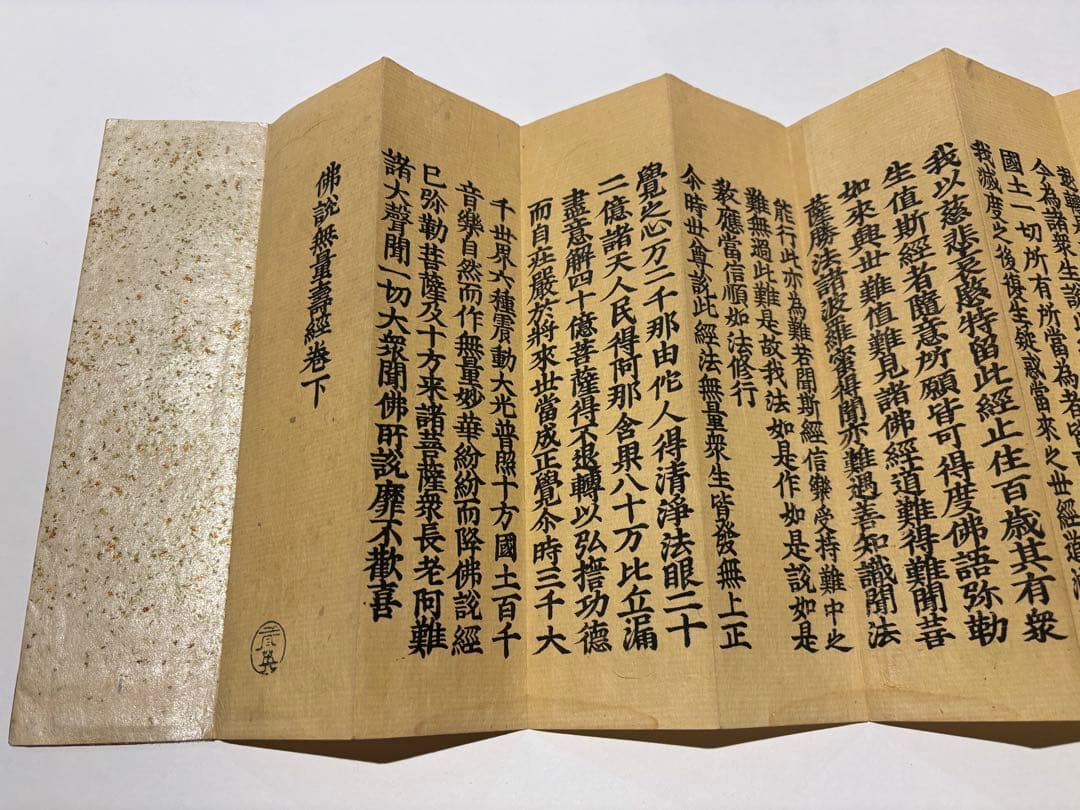 今為諸衆生說
國土一切所有所當為者皆
我滅度之後復生疑惑當來之世經道滅
我以慈悲哀愍特留此經止住百歳其有衆
生值斯經者隨意所願皆可得度佛語弥勒
如來興世難值難見諸佛經道難得難聞菩
薩勝法諸波羅蜜得聞亦難遇善知識聞法
能行此亦為難若聞斯經信樂受持難中之
難無過此難是故我法如是作如是說如是
教應當信順如法修行
尒時世尊說此經法無量衆生皆發無上正
覺之心万二千那由佗人得清淨法眼二十
二億諸天人民得阿那含果八十万比丘漏
盡意解四十億菩薩得不退轉以弘誓功德
而自莊嚴於將來世當成正覺尒時三千大
千世界六種震動大光普照十方國土百千
音樂自然而作無量妙華紛紛而降佛說經
已弥勒菩薩及十方来諸菩薩衆長老阿難
諸大聲聞一切大衆聞佛所說靡不歡喜
佛說無量壽經卷下